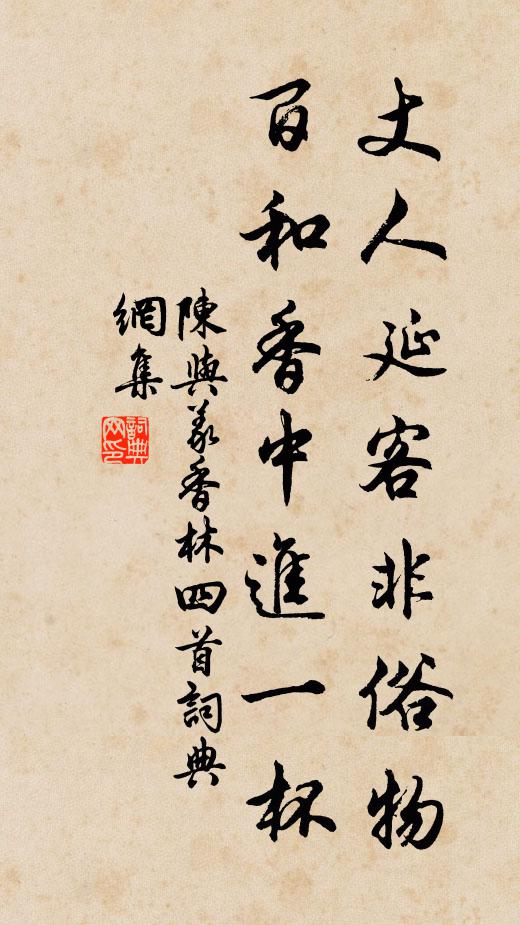 丈人延客非俗物
百和香中進一杯
陳與義香林四首詞典
網集
詞典
网印